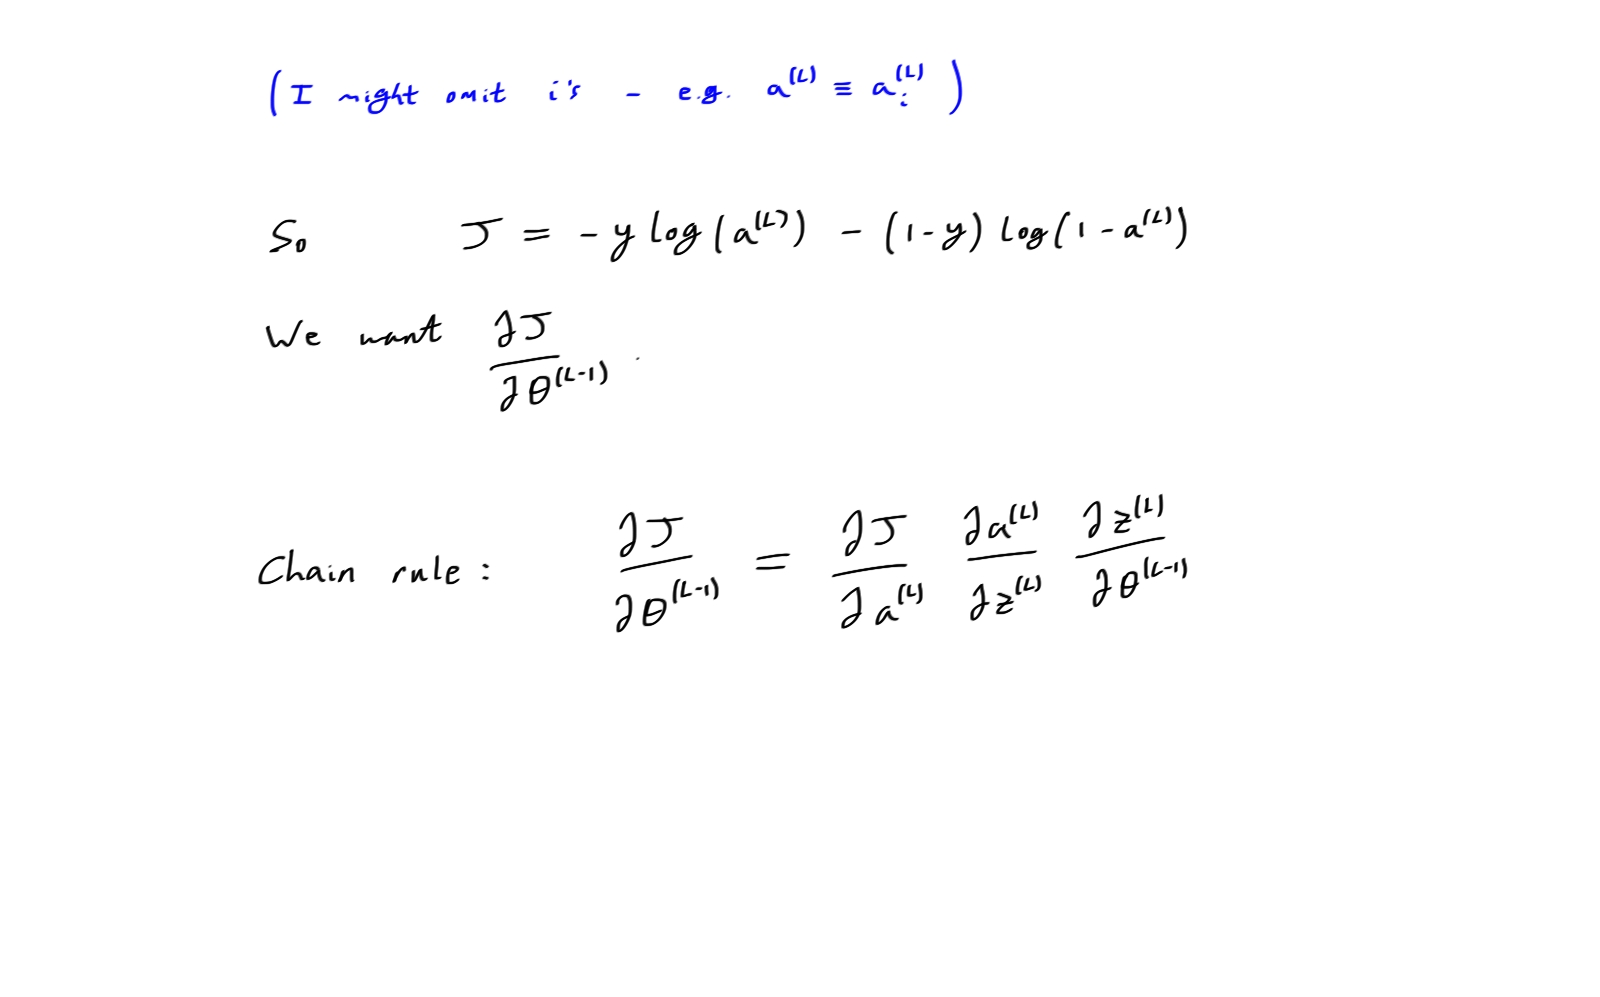 (I might omit i's - e.g. a^(L) ≡ a_i^(L))
So J = - y log(a^(L)) - (1-y) log(1 - a^(L))
We want ∂J/∂θ^(L-1)
Chain rule: ∂J/∂θ^(L-1) = ∂J/∂a^(L) ∂a^(L)/∂z^(L) ∂z^(L)/∂θ^(L-1)